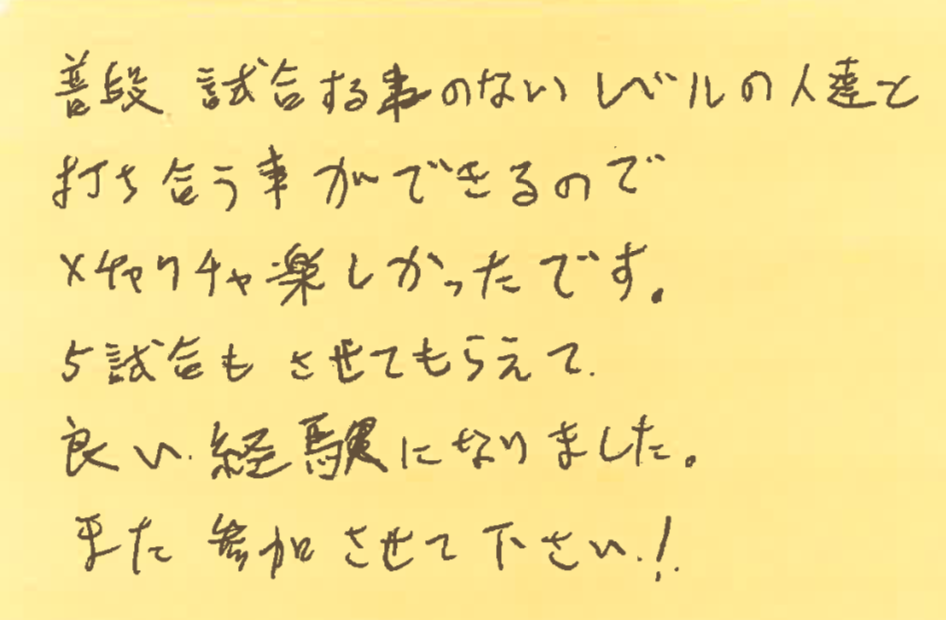 普段 試合する事のない レベルの人達と
打ち合う事ができるので
メチャクチャ楽しかったです。
5試合も させてもらえて.
良い経験になりました。
また 参加させて下さい!